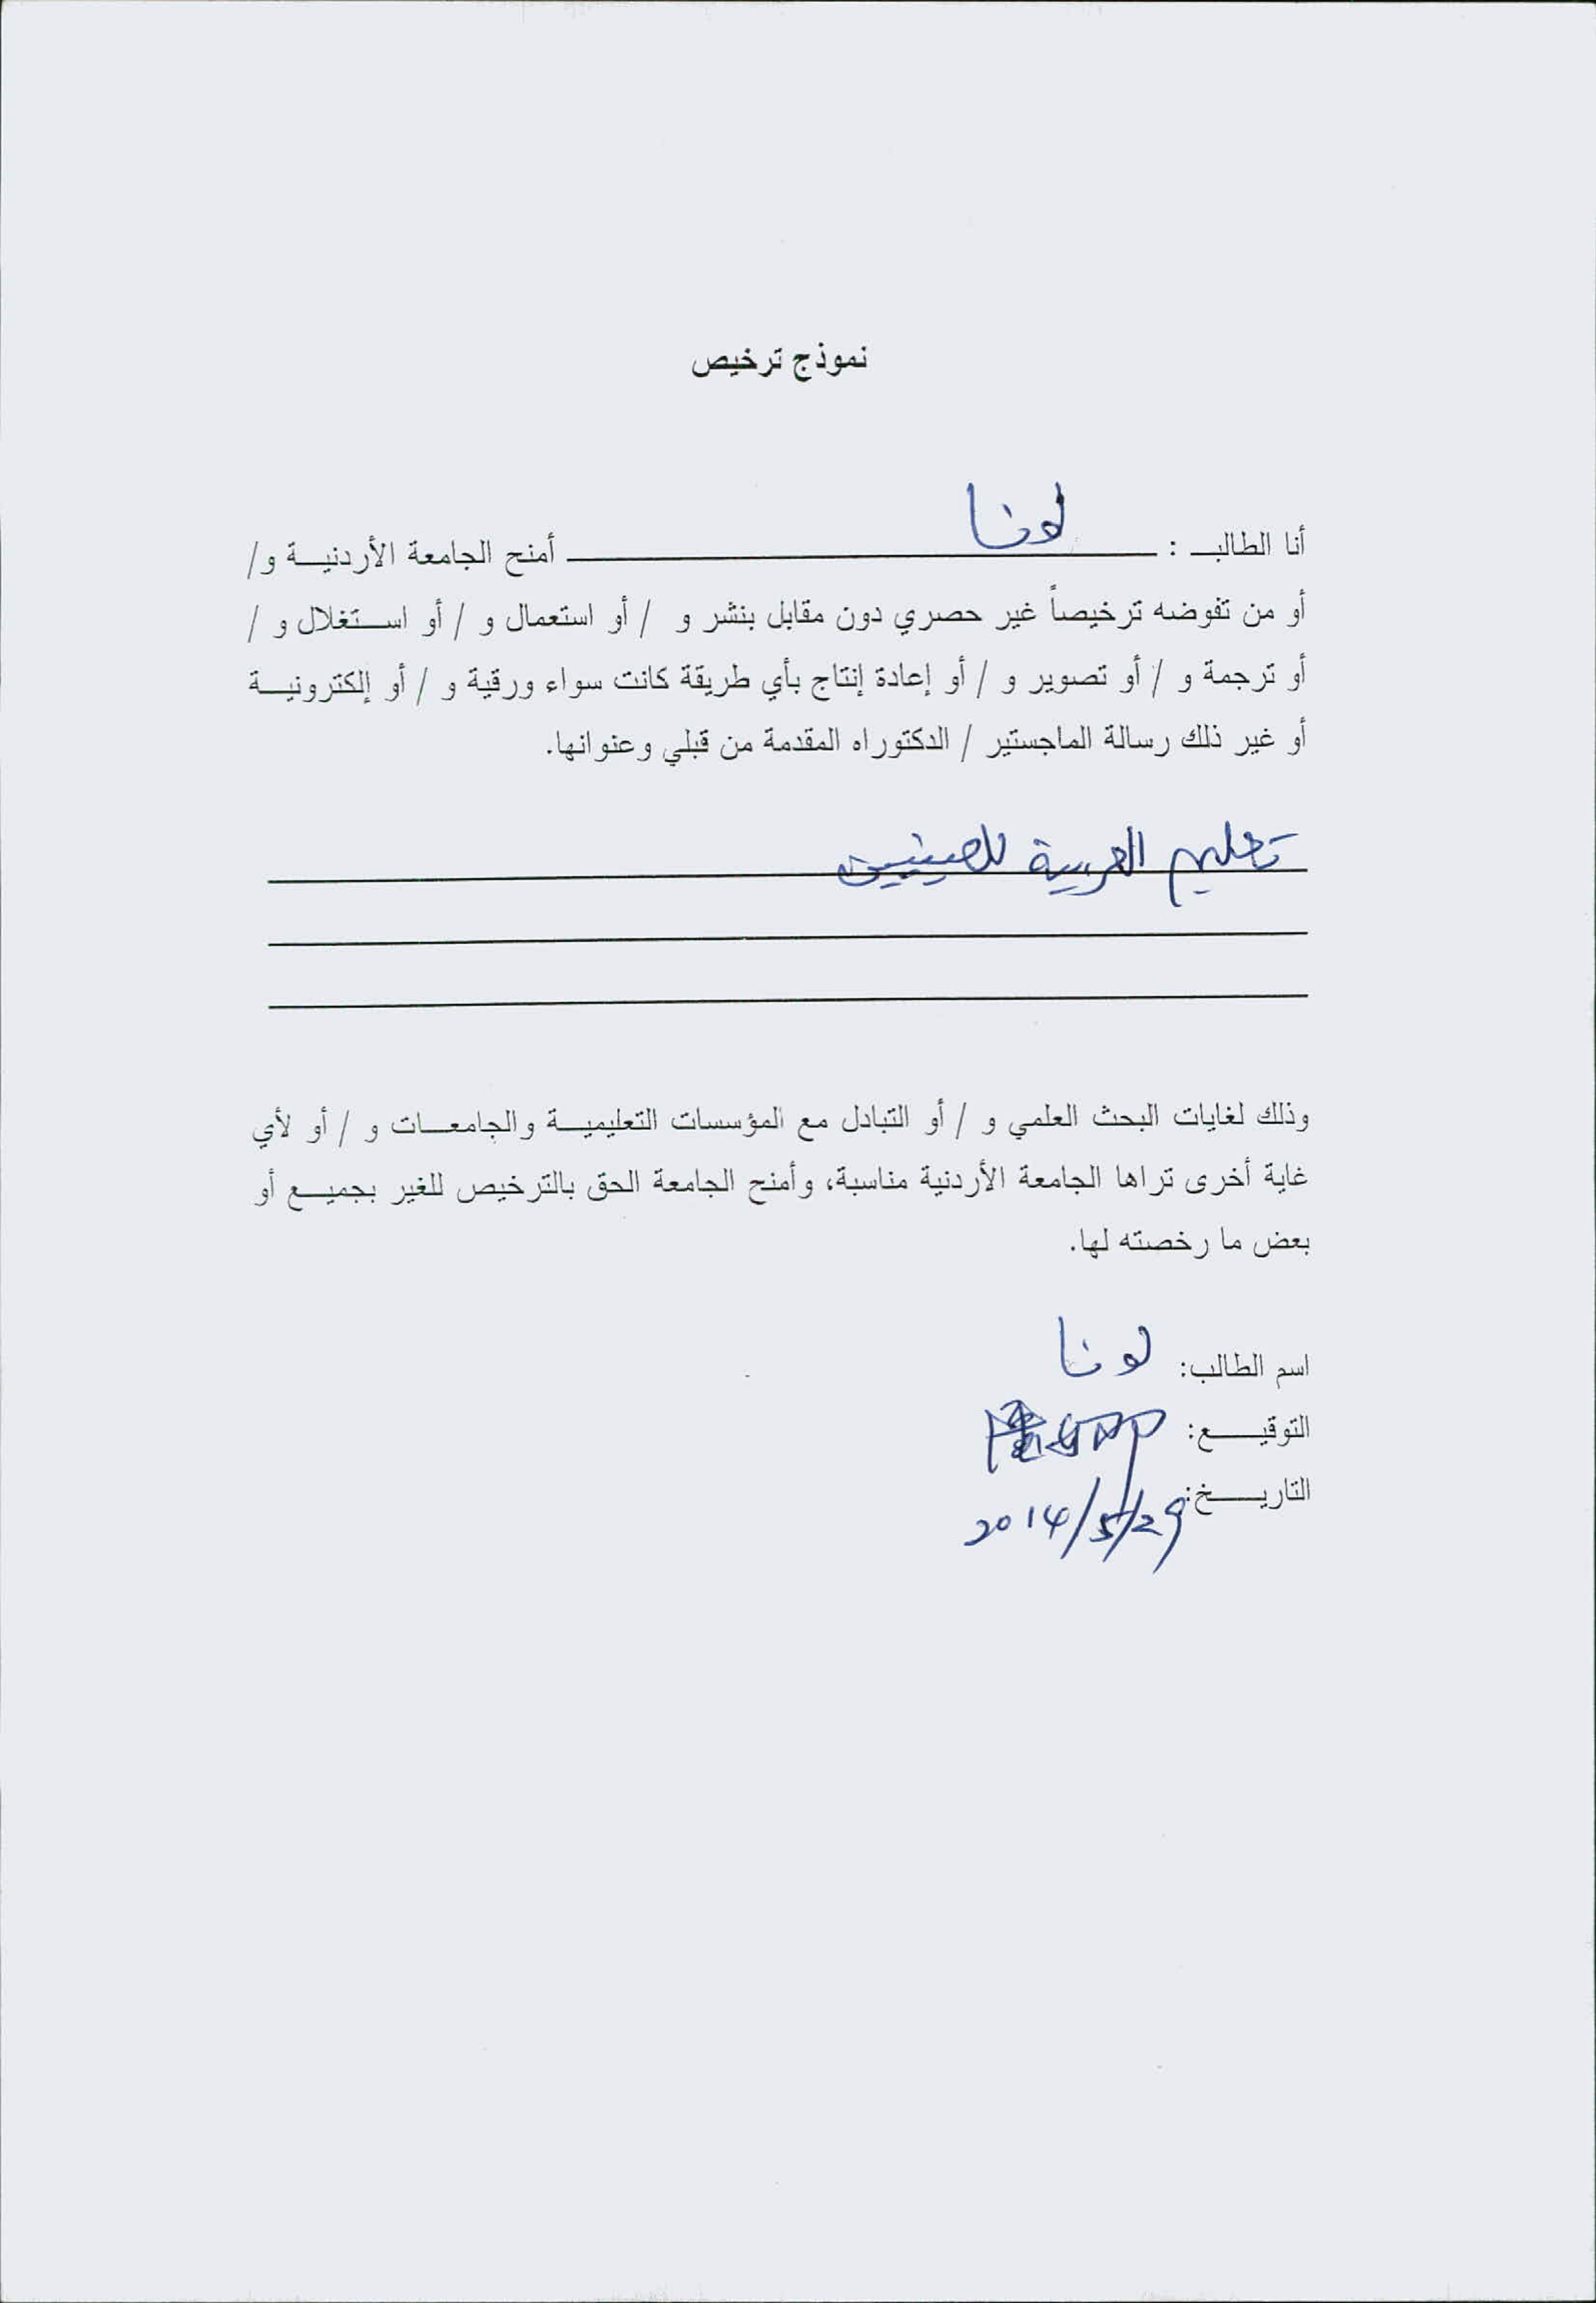 نموذج ترخيص
أنا الطالب : لونا أمنح الجامعة الأردنية و/
أو من تفوضه ترخيصاً غير حصري دون مقابل بنشر و / أو استعمال و / أو استغلال و /
أو ترجمة و / أو تصوير و / أو إعادة إنتاج بأي طريقة كانت سواء ورقية و / أو إلكترونية
أو غير ذلك رسالة الماجستير / الدكتوراه المقدمة من قبلي وعنوانها.
تعليم العربية للصينيين
وذلك لغايات البحث العلمي و / أو التبادل مع المؤسسات التعليمية والجامعات و / أو لأي
غاية أخرى تراها الجامعة الأردنية مناسبة، وأمنح الجامعة الحق بالترخيص للغير بجميع أو
بعض ما رخصته لها.
اسم الطالب: لونا
التوقيع:
التاريخ: 2014/5/29